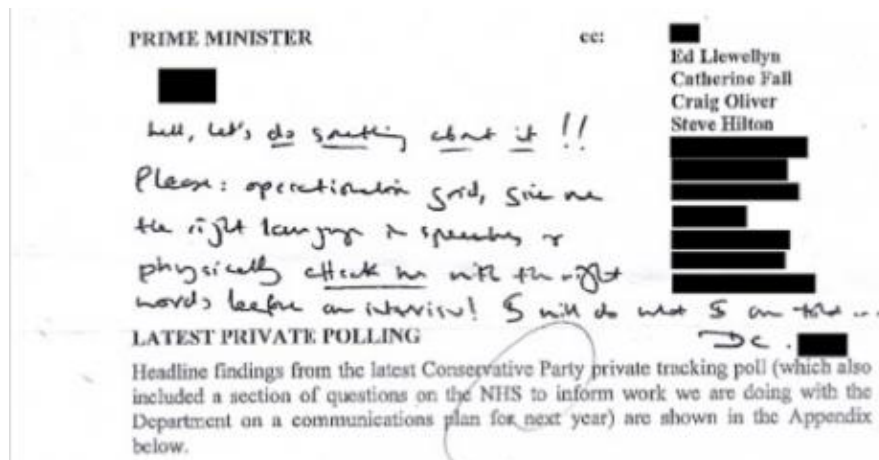 PRIME MINISTER cc:
Ed Llewellyn
Catherine Fall
Craig Oliver
Steve Hilton
Well, let's do something about it !!
Please: operationalise grid, give me
the right language in speeches or
physically attack me with the right
words before an interview! I will do what I am told ...
DC.
LATEST PRIVATE POLLING
Headline findings from the latest Conservative Party private tracking poll (which also
included a section of questions on the NHS to inform work we are doing with the
Department on a communications plan for next year) are shown in the Appendix
below.